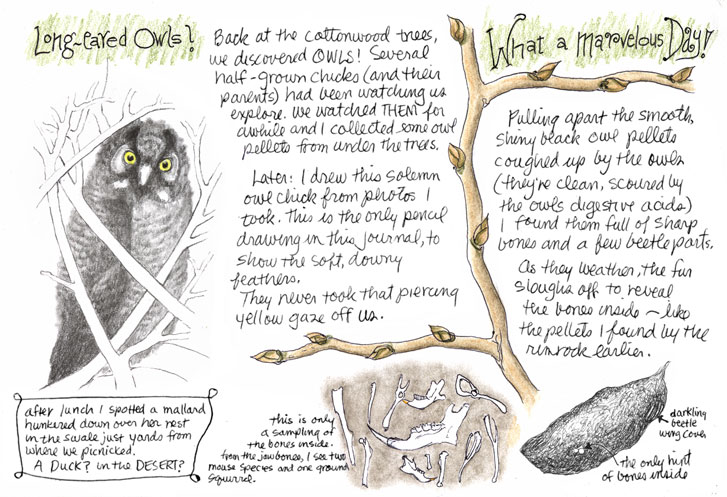 Long-eared Owls?
Back at the cottonwood trees,
we discovered OWLS! Several
half-grown chicks (and their
parents) had been watching us
explore. We watched THEM for
awhile and I collected some owl
pellets from under the trees.
Later: I drew this solemn
owl chick from photos I
took. This is the only pencil
drawing in this journal, to
show the soft, downy
feathers.
They never took that piercing
yellow gaze off us.
after lunch I spotted a mallard
hunkered down over her nest
in the swale just yards from
where we picnicked.
A DUCK? in the DESERT?
What a Marvelous Day!
Pulling apart the smooth,
shiny black owl pellets
coughed up by the owls
(they're clean, scoured by
the owl's digestive acids)
I found them full of sharp
bones and a few beetle parts.
As they weather, the fur
sloughs off to reveal
the bones inside – like
the pellets I found by the
rimrock earlier.
this is only
a sampling of
the bones inside.
from the jawbones, I see two
mouse species and one ground
squirrel.
darkling
beetle
wing cover
the only hint
of bones inside